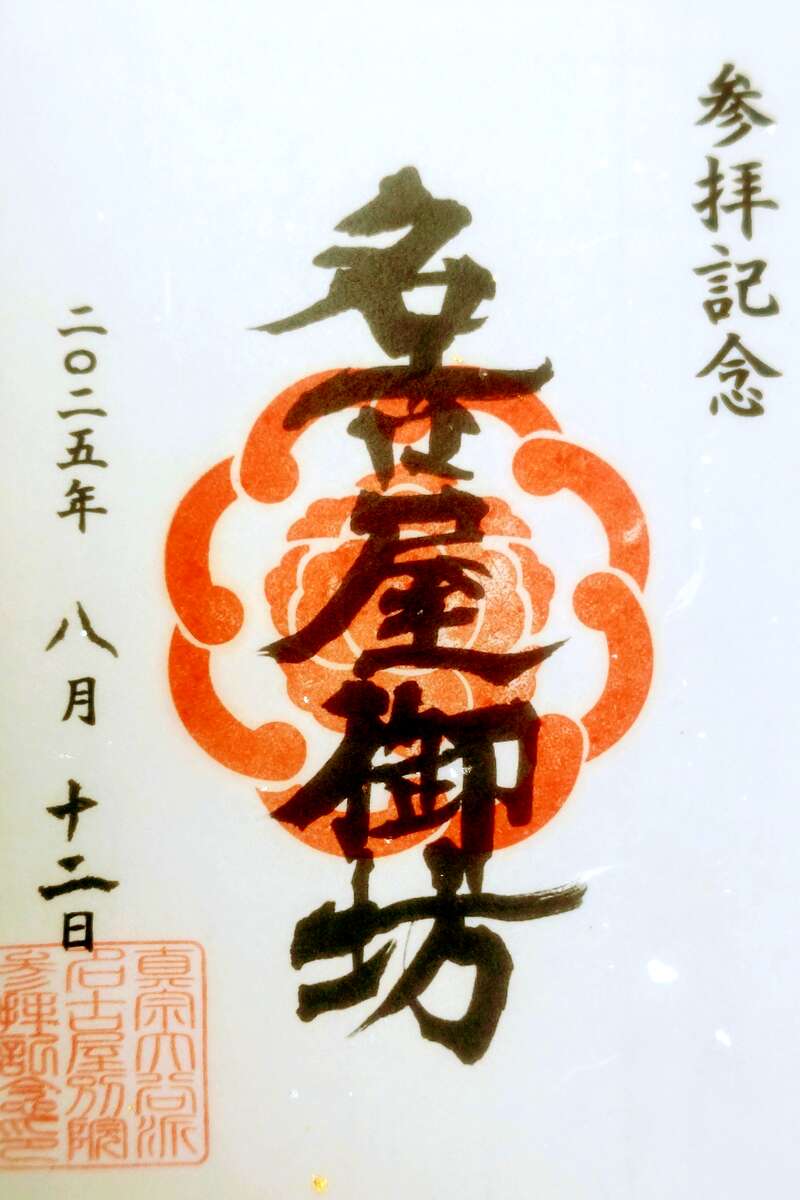 参拝記念
名古屋御坊
二〇二五年 八月 十二日
真宗大谷派
名古屋別院
参拝記念印